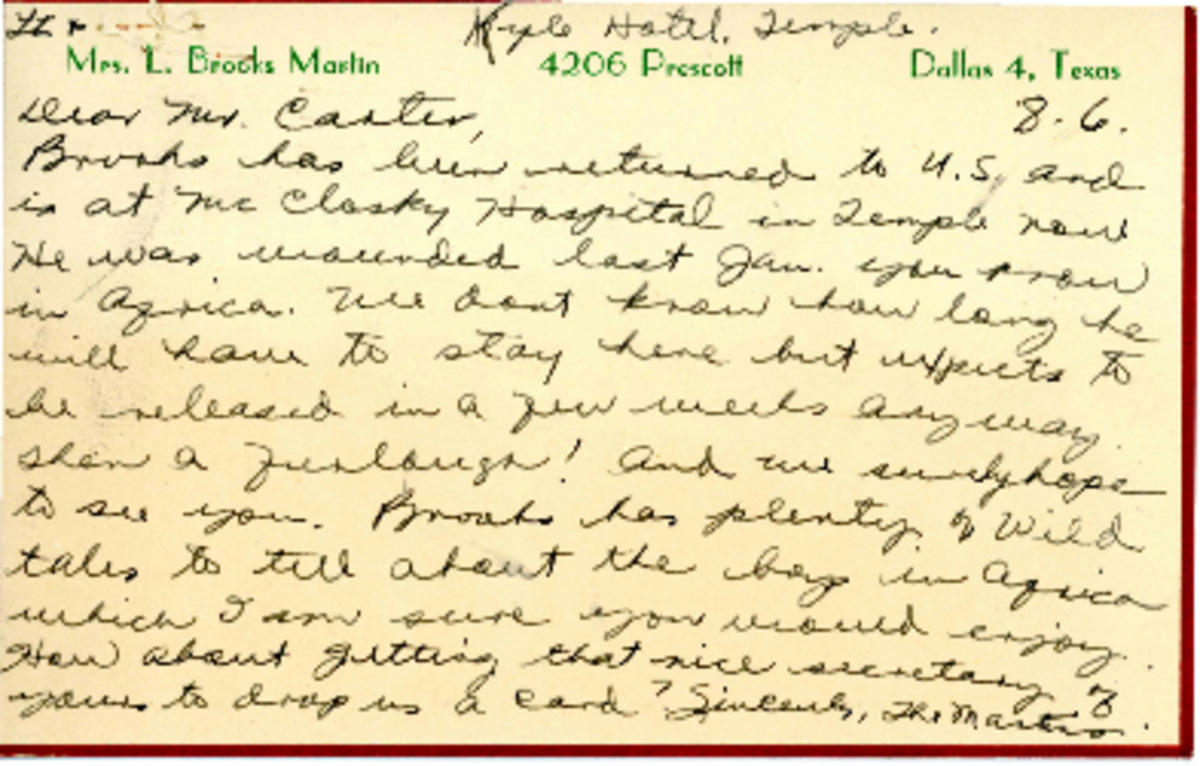 Lt &
Kyle Hotel. Temple.
Mrs. L. Brooks Martin 4206 Prescott Dallas 4, Texas
Dear Mr. Carter, 8-6.
Brooks has been returned to U.S. and
is at McClosky Hospital in Temple now
He was wounded last Jan. you know
in Africa. We dont know how long he
will have to stay here but expects to
be released in a few weeks anyway.
then a furlough! And we surely hope
to see you. Brooks has plenty of Wild
tales to tell about the boys in Africa
which I am sure you would enjoy.
How about getting that nice secretary of
yours to drop us a card? Sincerely, The Martins.